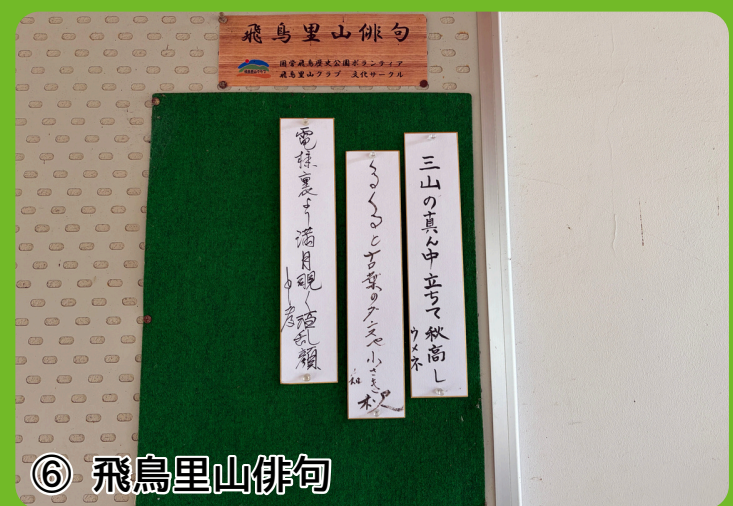 飛鳥里山俳句
国営飛鳥歴史公園ボランティア
飛鳥里山クラブ 文化サークル
三山の真ん中立ちて秋高し
ウメネ
くるくると古葉のダンスや小さき秋
電線裏より満月覗く
⑥ 飛鳥里山俳句